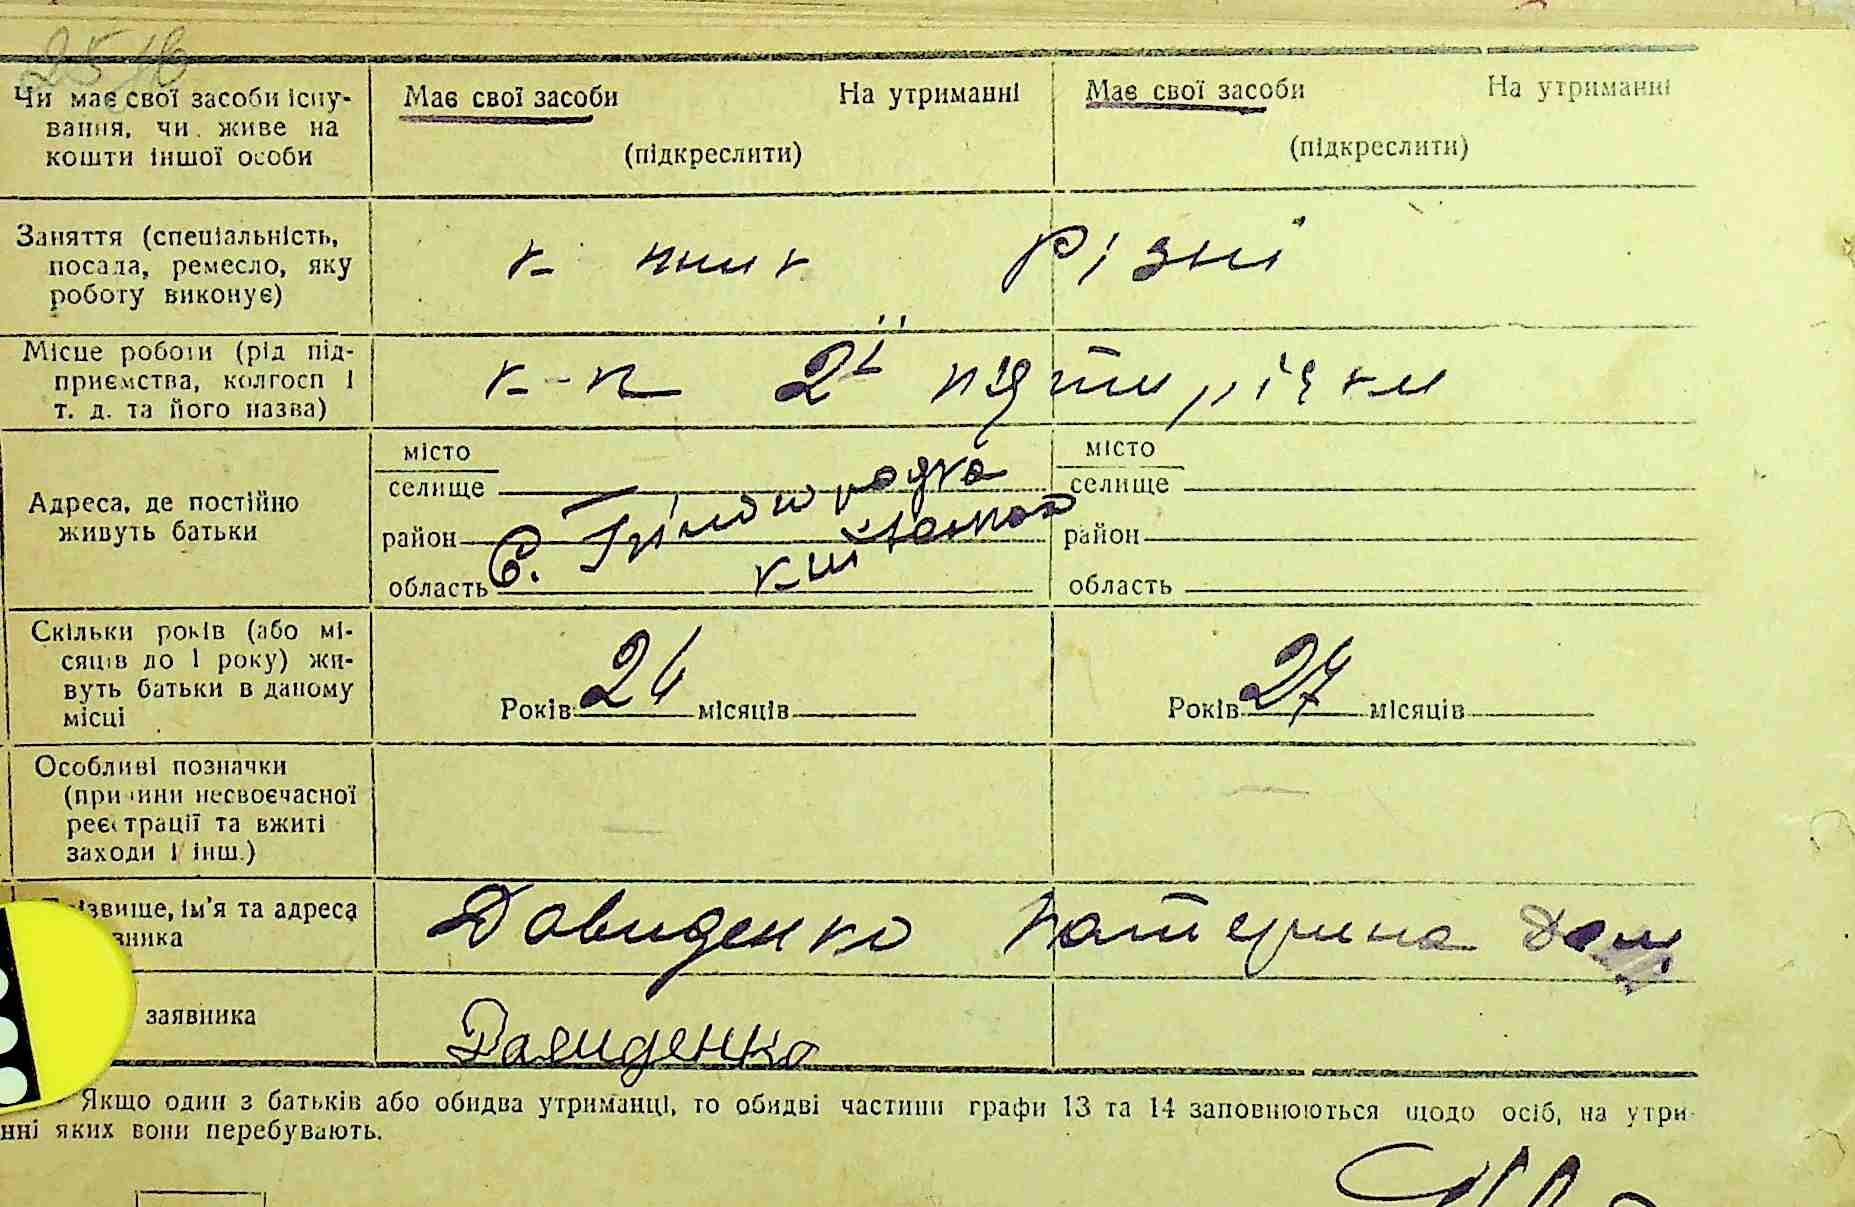 Чи має свої засоби існу-
вання, чи живе на
кошти іншої особи
Має свої засоби На утриманні
(підкреслити)
Має свої засоби На утриманні
(підкреслити)
Заняття (спеціальність,
посада, ремесло, яку
роботу виконує)
к-ник різні
Місце роботи (рід під-
приємства, колгосп і
т. д. та його назва)
к-п 2ї п'ятирічки
Адреса, де постійно
живуть батьки
місто
селище
район
область
с. Білогородка
місто
селище
район
область
Скільки років (або мі-
сяців до 1 року) жи-
вуть батьки в даному
місці
Років 24 місяців
Років 24 місяців
Особливі позначки
(причини несвоєчасної
реєстрації та вжиті
заходи і інш.)
Прізвище, ім'я та адреса
Давиденко Катерина
заявника
Давиденко
Якщо один з батьків або обидва утриманці, то обидві частини графи 13 та 14 заповнюються щодо осіб, на утри-
нні яких вони перебувають.